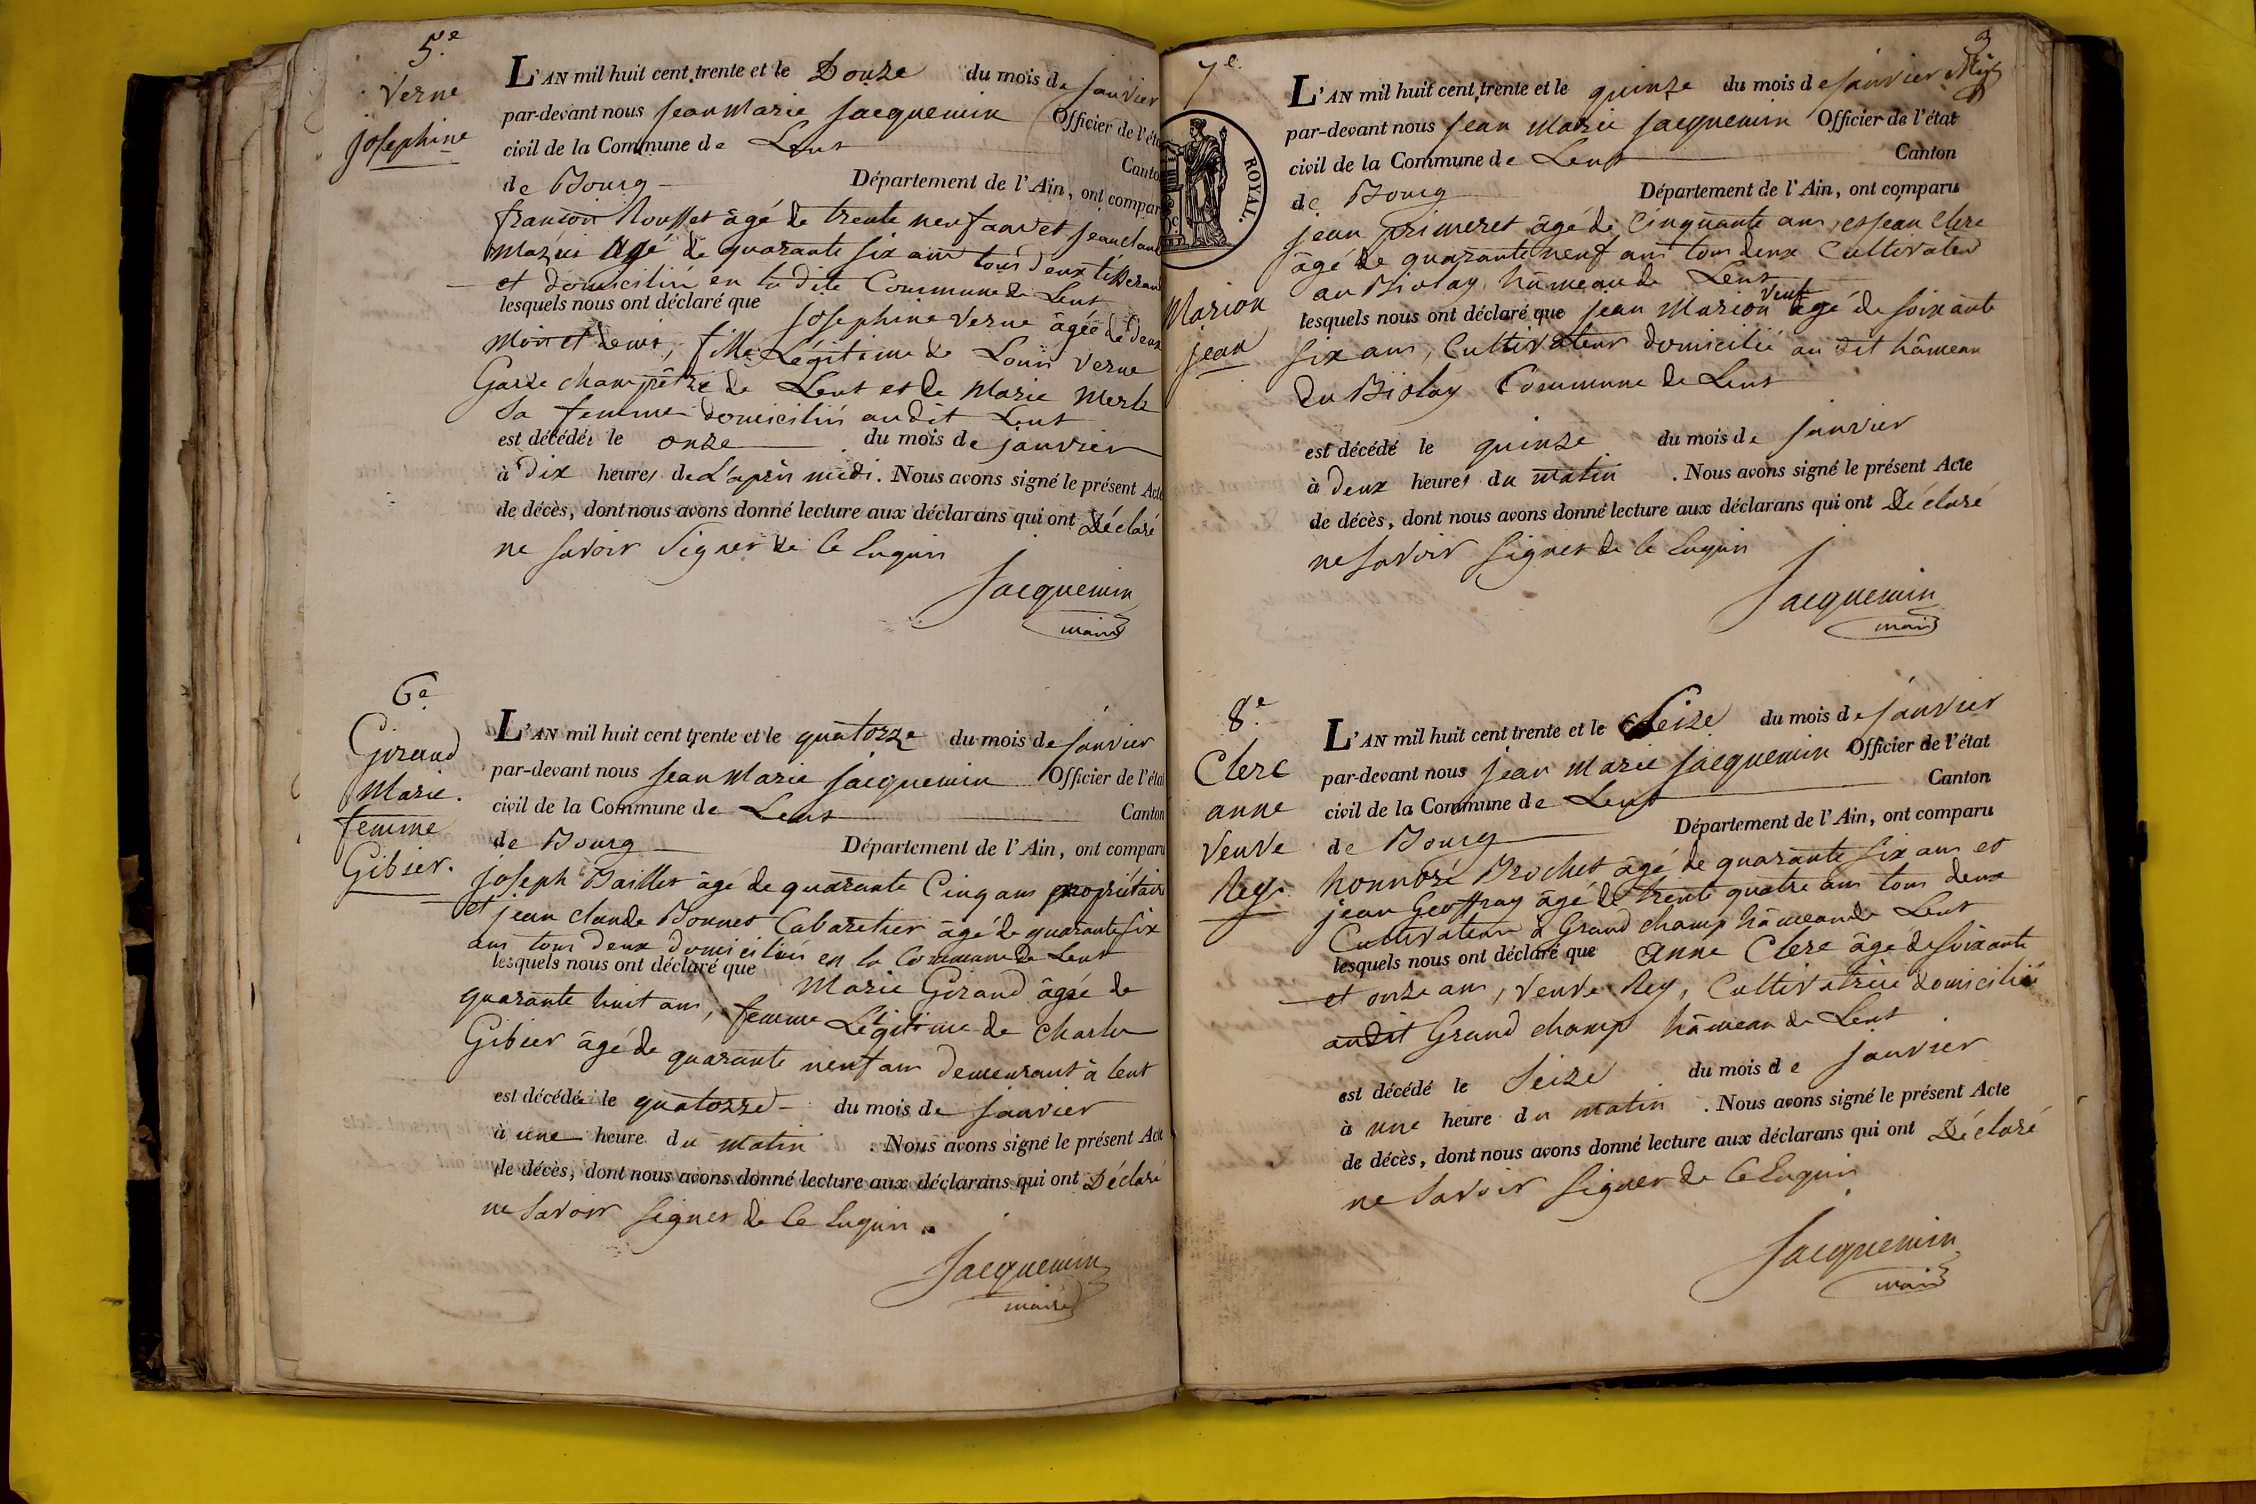 5.e
Verne
josephine
L'AN mil huit cent trente et le Douze du mois de janvier
par-devant nous jean Marie jacquemin Officier de l'éta
civil de la Commune de Lent Canto
de Bourg Département de l'Ain, ont compar
françois Rousset âgé de trente neuf ans et jean claude
Mazuis agé de quarante six ans tous deux tisseran
et domiciliés en la dite Commune de Lent
lesquels nous ont déclaré que josephine Verne âgée de deux
Mois et demi, fille Légitime de Louis Verne
Garde champêtre de Lent et de Marie Merle
Sa femme domiciliés audit Lent
est décédée le onze du mois de janvier
à Dix heures de L'après midi. Nous avons signé le présent Acte
de décès, dont nous avons donné lecture aux déclarans qui ont Déclaré
ne savoir Signer de ce Enquis
Jacquemin
maire
6.e
Giraud
Marie.
femme
Gibier.
L'AN mil huit cent trente et le quatorze du mois de janvier
par-devant nous jean Marie jacquemin Officier de l'état
civil de la Commune de Lent Canton
de Bourg Département de l'Ain, ont comparu
joseph Baillet âgé de quarante Cinq ans propriétaire
et jean claude Bonnet Cabaretier âgé de quarante six
ans tous deux domiciliés en la Commune de Lent
lesquels nous ont déclaré que Marie Giraud âgée de
quarante huit ans, femme Légitime de Charles
Gibier âgé de quarante neuf ans demeurant à Lent
est décédée le quatorze du mois de janvier
à une heure du matin . Nous avons signé le présent Acte
de décès, dont nous avons donné lecture aux déclarans qui ont Déclaré
ne Savoir signer de ce Enquis.
Jacquemin
maire
3
7.e
ROYAL.
Marion
jean
L'AN mil huit cent trente et le quinze du mois de janvier
par-devant nous jean Marie jacquemin Officier de l'état
civil de la Commune de Lent Canton
de Bourg Département de l'Ain, ont comparu
jean primeret âgé de Cinquante ans, et jean Clerc
âgé de quarante neuf ans tous deux Cultivateu
au Biolay hâmeau de Lent
lesquels nous ont déclaré que jean Marion veuf âgé de soixante
six ans, Cultivateur domicilié au dit hâmeau
du Biolay Commune de Lent
est décédé le quinze du mois de janvier
à Deux heures du matin . Nous avons signé le présent Acte
de décès, dont nous avons donné lecture aux déclarans qui ont Déclaré
ne savoir signer de ce Enquis
Jacquemin
maire
8.e
Clerc
anne
Veuve
Rey.
L'AN mil huit cent trente et le Seize du mois de janvier
par-devant nous jean Marie jacquemin Officier de l'état
civil de la Commune de Lent Canton
de Bourg Département de l'Ain, ont comparu
honnoré Brochet âgé de quarante six ans et
jean Geoffray âgé de trente quatre ans tous deux
Cultivateurs à Grand champ hâmeau de Lent
lesquels nous ont déclaré que anne Clerc âgé de soixante
et onze ans, Veuve Rey, Cultivatrice domiciliée
audit Grand champ hâmeau de Lent
est décédé le Seize du mois de janvier
à une heure du matin . Nous avons signé le présent Acte
de décès, dont nous avons donné lecture aux déclarans qui ont Déclaré
ne Savoir signer de ce Enquis
Jacquemin
maire